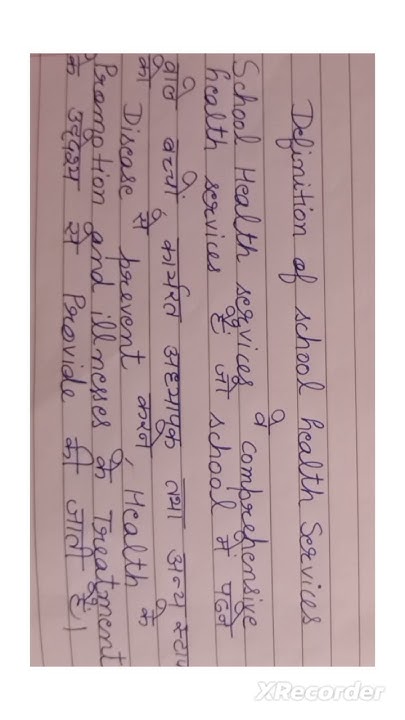 Definition of school health Services
School Health services वे comprehensive
health services हैं जो school में पढ़ने
वाले बच्चों, कार्यरत अध्यापक तथा अन्य स्टाफ
को Disease से prevent करने, Health के
Promotion and illnesses के Treatment
के उद्देश्य से Provide की जाती हैं।
XRecorder